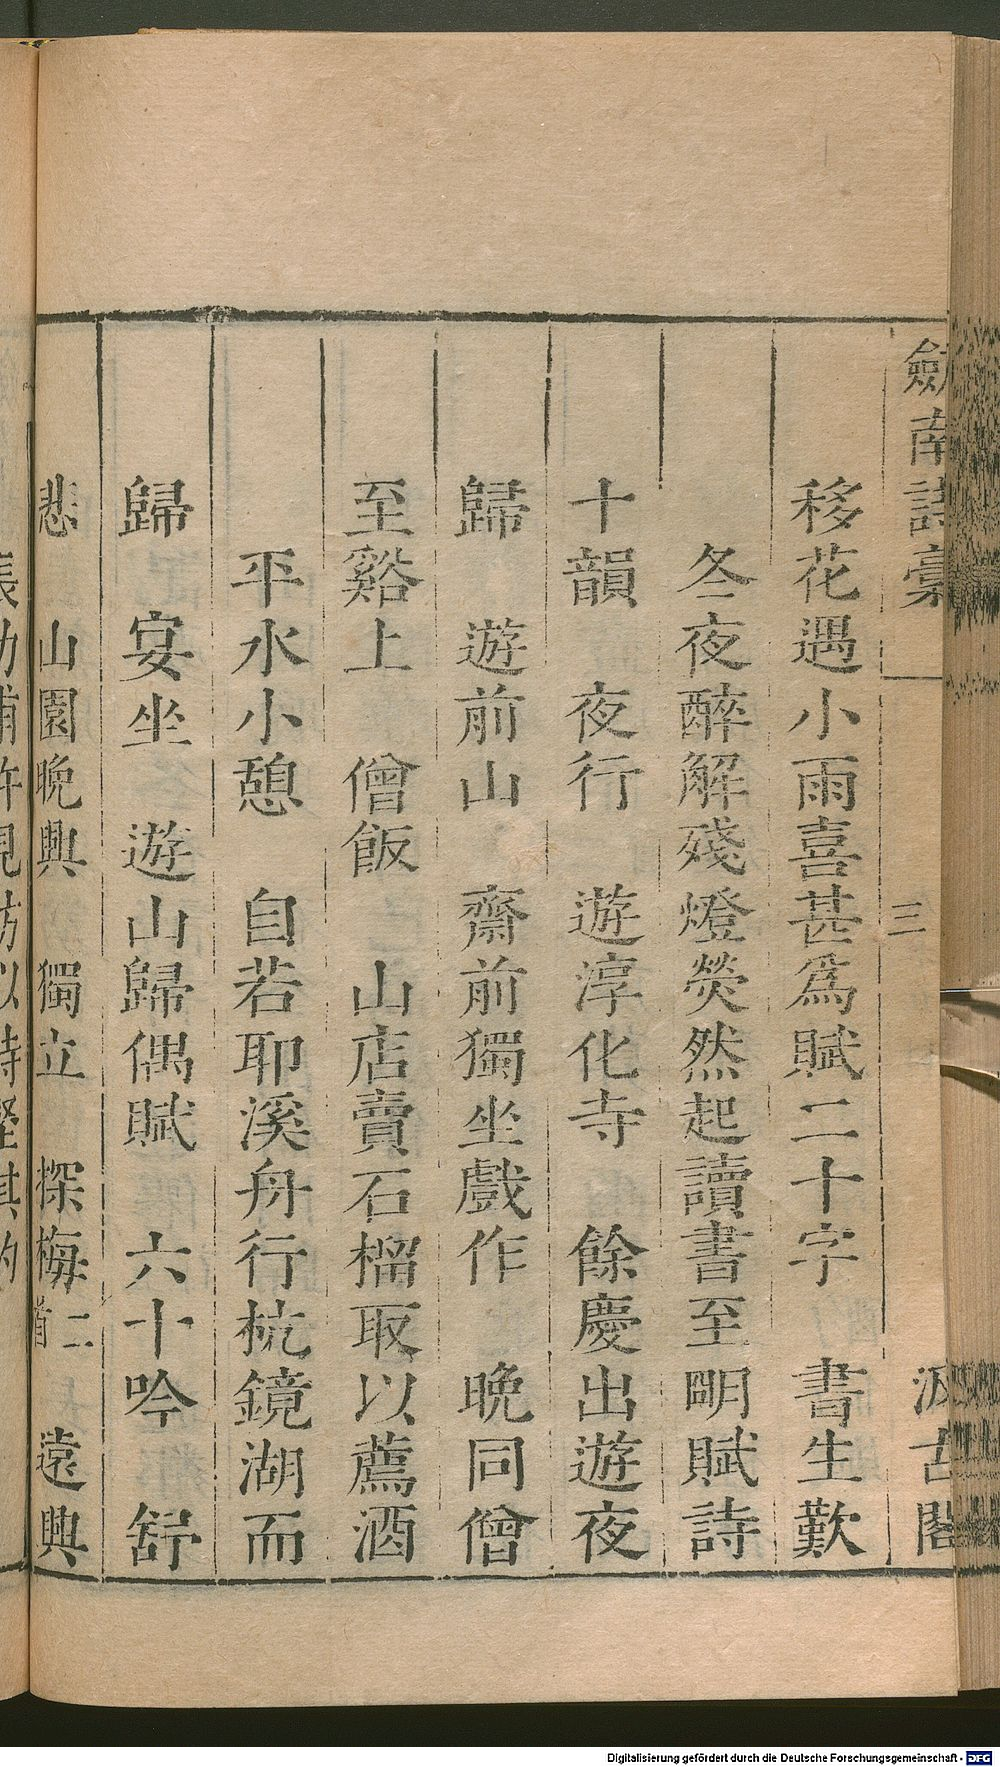 劔南詩稾
三
汲古閣
移花遇小雨喜甚為賦二十字　書生歎
冬夜醉解殘燈熒然起讀書至明賦詩
十韻　夜行　遊淳化寺　餘慶出遊夜
歸　遊前山　齋前獨坐戲作　晚同僧
至谿上　僧飯　山店賣石榴取以薦酒
平水小憩　自若耶溪舟行杭鏡湖而
歸　宴坐　遊山歸偶賦　六十吟　舒
悲　山園晚興　獨立　探梅二首　遠興
Digitalisierung gefördert durch die Deutsche Forschungsgemeinschaft - DFG